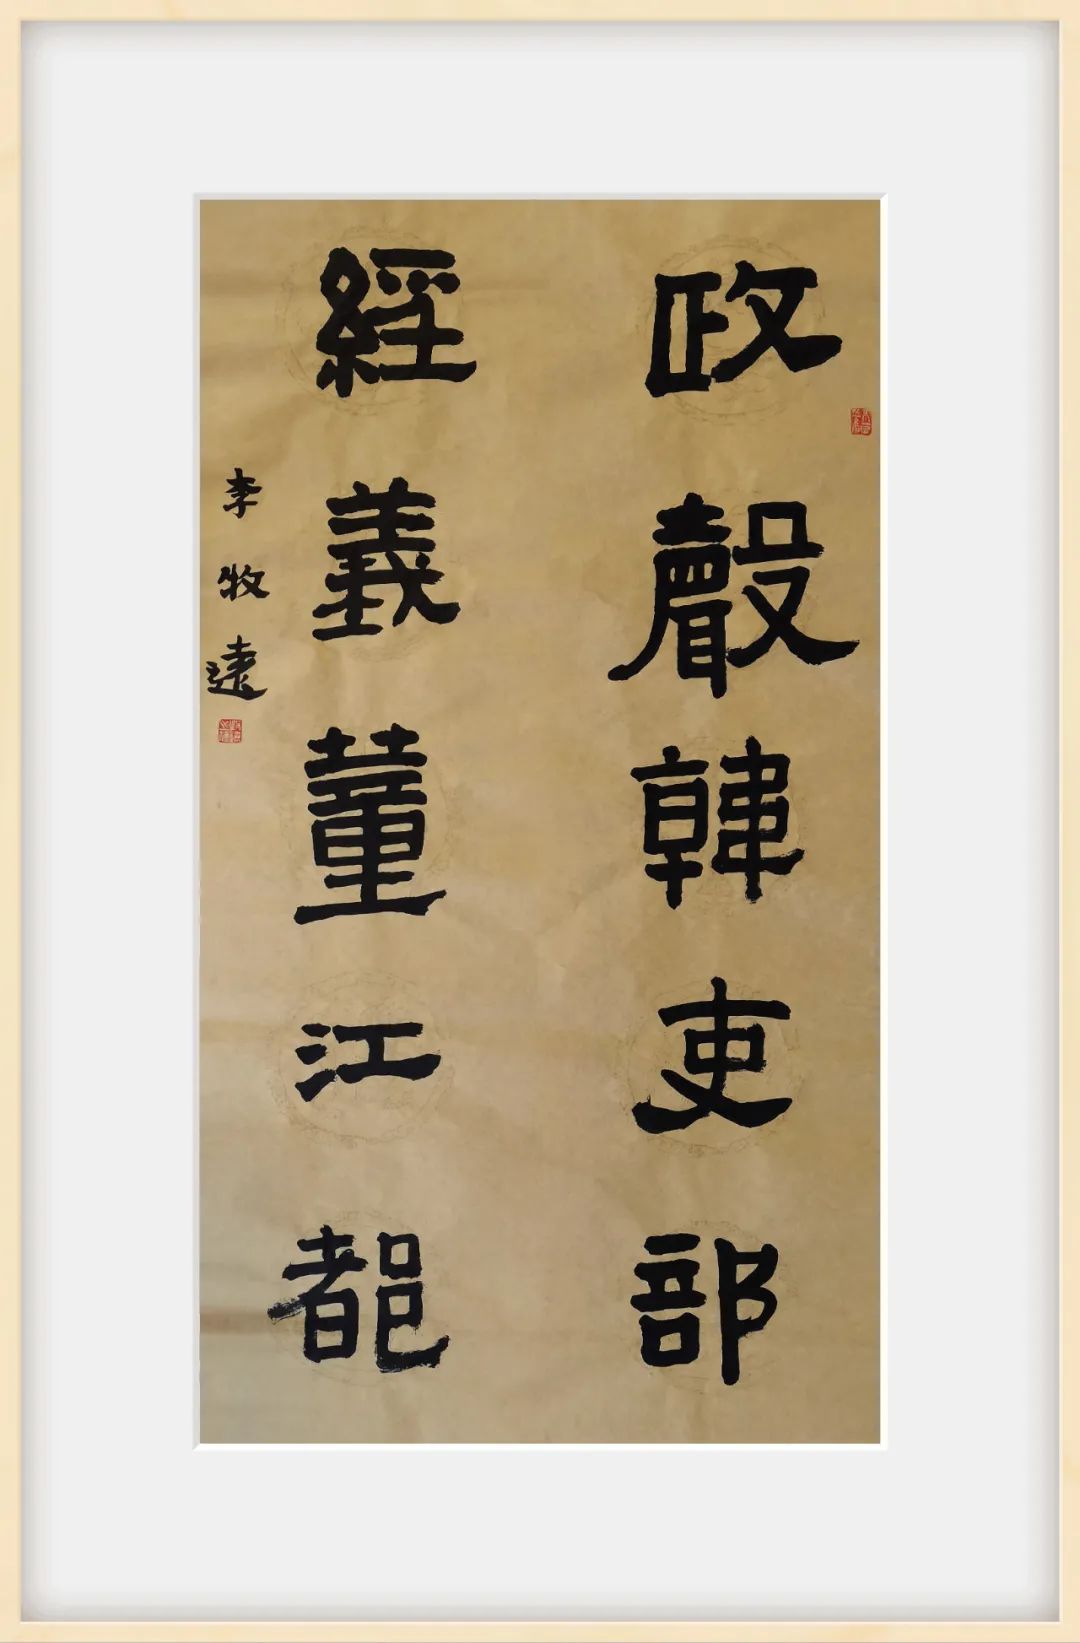 政聲韓吏部
經義董江都
李牧遠